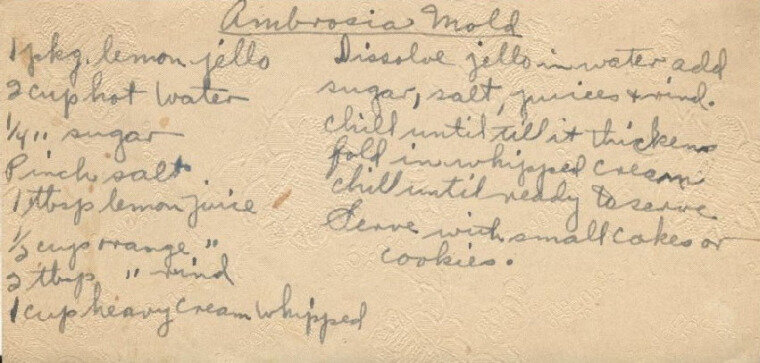 Ambrosia Mold
1 pkg. lemon jello
2 cup hot water
1/4 " sugar
Pinch salt
1 tbsp lemon juice
1/2 cup orange "
2 tbsp " rind
1 cup heavy cream whipped
Dissolve jello in water add
sugar, salt, juices & rind.
chill until till it thickens
fold in whipped cream
chill until ready to serve
Serve with small cakes or
cookies.